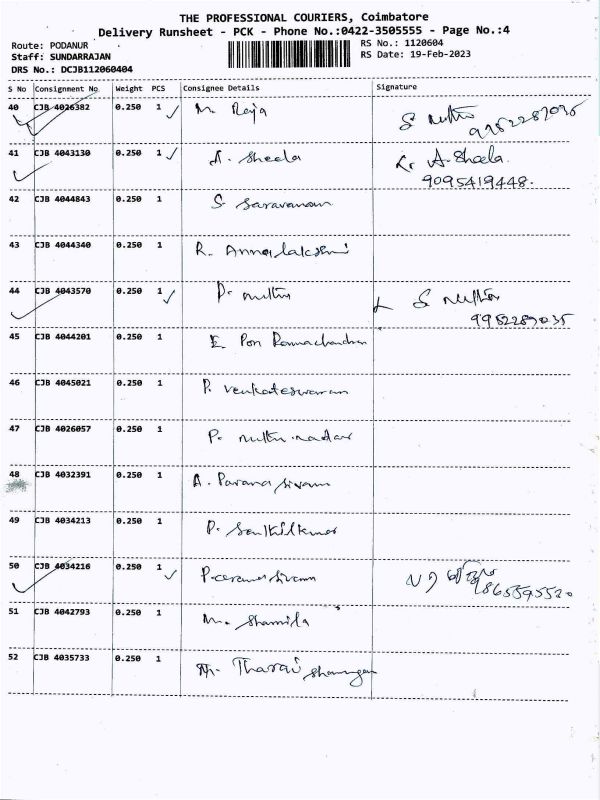 THE PROFESSIONAL COURIERS, Coimbatore
Delivery Runsheet - PCK - Phone No.:0422-3505555 - Page No.:4
Route: PODANUR
RS No.: 1120604
Staff: SUNDARRAJAN
RS Date: 19-Feb-2023
DRS No.: DCJB112060404
S No Consignment No. Weight PCS Consignee Details Signature
40 CJB 4026382 0.250 1 M. Raja S Muthu
41 CJB 4043130 0.250 1 A. Sheela A. Sheela.
9095419448.
42 CJB 4044843 0.250 1 S. Saravanan
43 CJB 4044340 0.250 1 R. Annalakshmi
44 CJB 4043570 0.250 1 P. muthu S Muthu
45 CJB 4044201 0.250 1 E. Pon Ramachandran
46 CJB 4045021 0.250 1 P. Venkateswaran
47 CJB 4026057 0.250 1 P. muthu nadar
48 CJB 4032391 0.250 1 A. Paramasivam
49 CJB 4034213 0.250 1 P. Senthilkumar
50 CJB 4034216 0.250 1
51 CJB 4042793 0.250 1 M. Shamila
52 CJB 4035733 0.250 1 Tharai